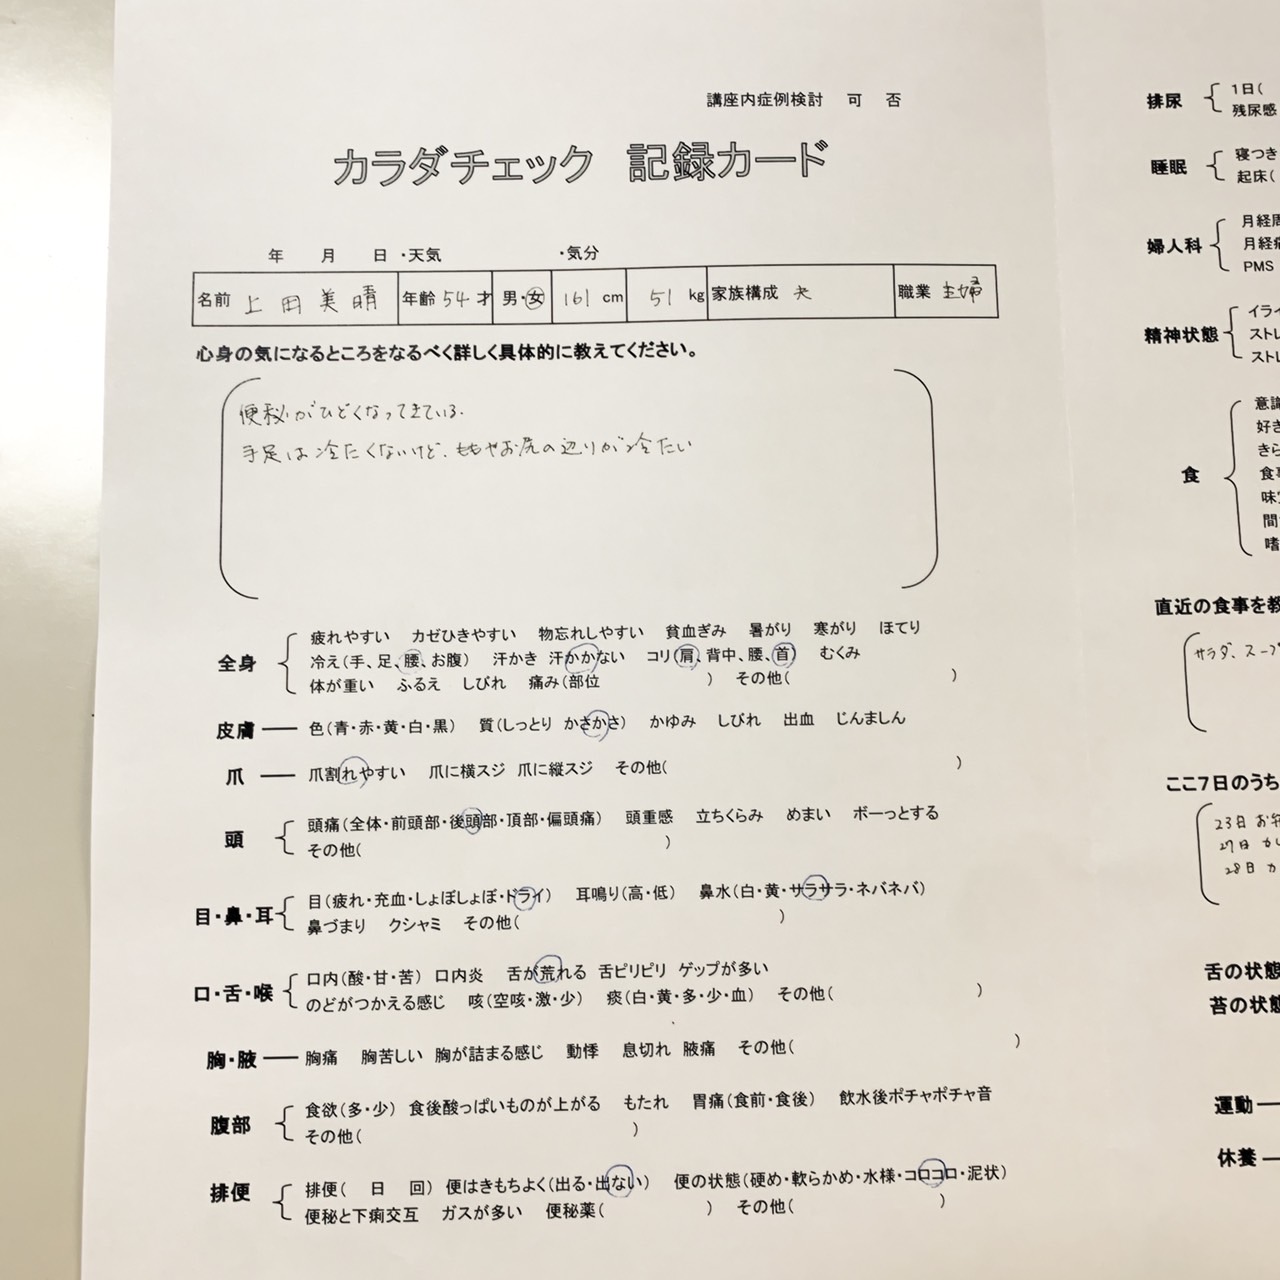 講座内症例検討 可 否
カラダチェック 記録カード
年 月 日 ・天気 ・気分
名前 上田美晴 年齢 54 才 男・女 161 cm 51 kg 家族構成 夫 職業 主婦
心身の気になるところをなるべく詳しく具体的に教えてください。
便秘がひどくなってきている.
手足は冷たくないけど、ももやお尻の辺りが冷たい
全身
疲れやすい カゼひきやすい 物忘れしやすい 貧血ぎみ 暑がり 寒がり ほてり
冷え(手、足、腰、お腹) 汗かき 汗かかない コリ(肩、背中、腰、首) むくみ
体が重い ふるえ しびれ 痛み(部位 ) その他( )
皮膚 色(青・赤・黄・白・黒) 質(しっとり かさかさ) かゆみ しびれ 出血 じんましん
爪 爪割れやすい 爪に横スジ 爪に縦スジ その他( )
頭
頭痛(全体・前頭部・後頭部・頂部・偏頭痛) 頭重感 立ちくらみ めまい ボーっとする
その他( )
目・鼻・耳
目(疲れ・充血・しょぼしょぼ・ドライ) 耳鳴り(高・低) 鼻水(白・黄・サラサラ・ネバネバ)
鼻づまり クシャミ その他( )
口・舌・喉
口内(酸・甘・苦) 口内炎 舌が荒れる 舌ピリピリ ゲップが多い
のどがつかえる感じ 咳(空咳・激・少) 痰(白・黄・多・少・血) その他( )
胸・腋 胸痛 胸苦しい 胸が詰まる感じ 動悸 息切れ 腋痛 その他( )
腹部
食欲(多・少) 食後酸っぱいものが上がる もたれ 胃痛(食前・食後) 飲水後ポチャポチャ音
その他( )
排便
排便( 日 回) 便はきもちよく(出る・出ない) 便の状態(硬め・軟らかめ・水様・コロコロ・泥状)
便秘と下痢交互 ガスが多い 便秘薬( ) その他( )
排尿
1日(
残尿感
睡眠
寝つき
起床(
婦人科
月経周
月経痛
PMS
精神状態
イライ
ストレ
ストレ
食
意識
好き
きら
食事
味
間
嗜
直近の食事を教
サラダ、スープ
ここ7日のうち
23日 お
27日 か
28日 カ
舌の状態
苔の状態
運動
休養